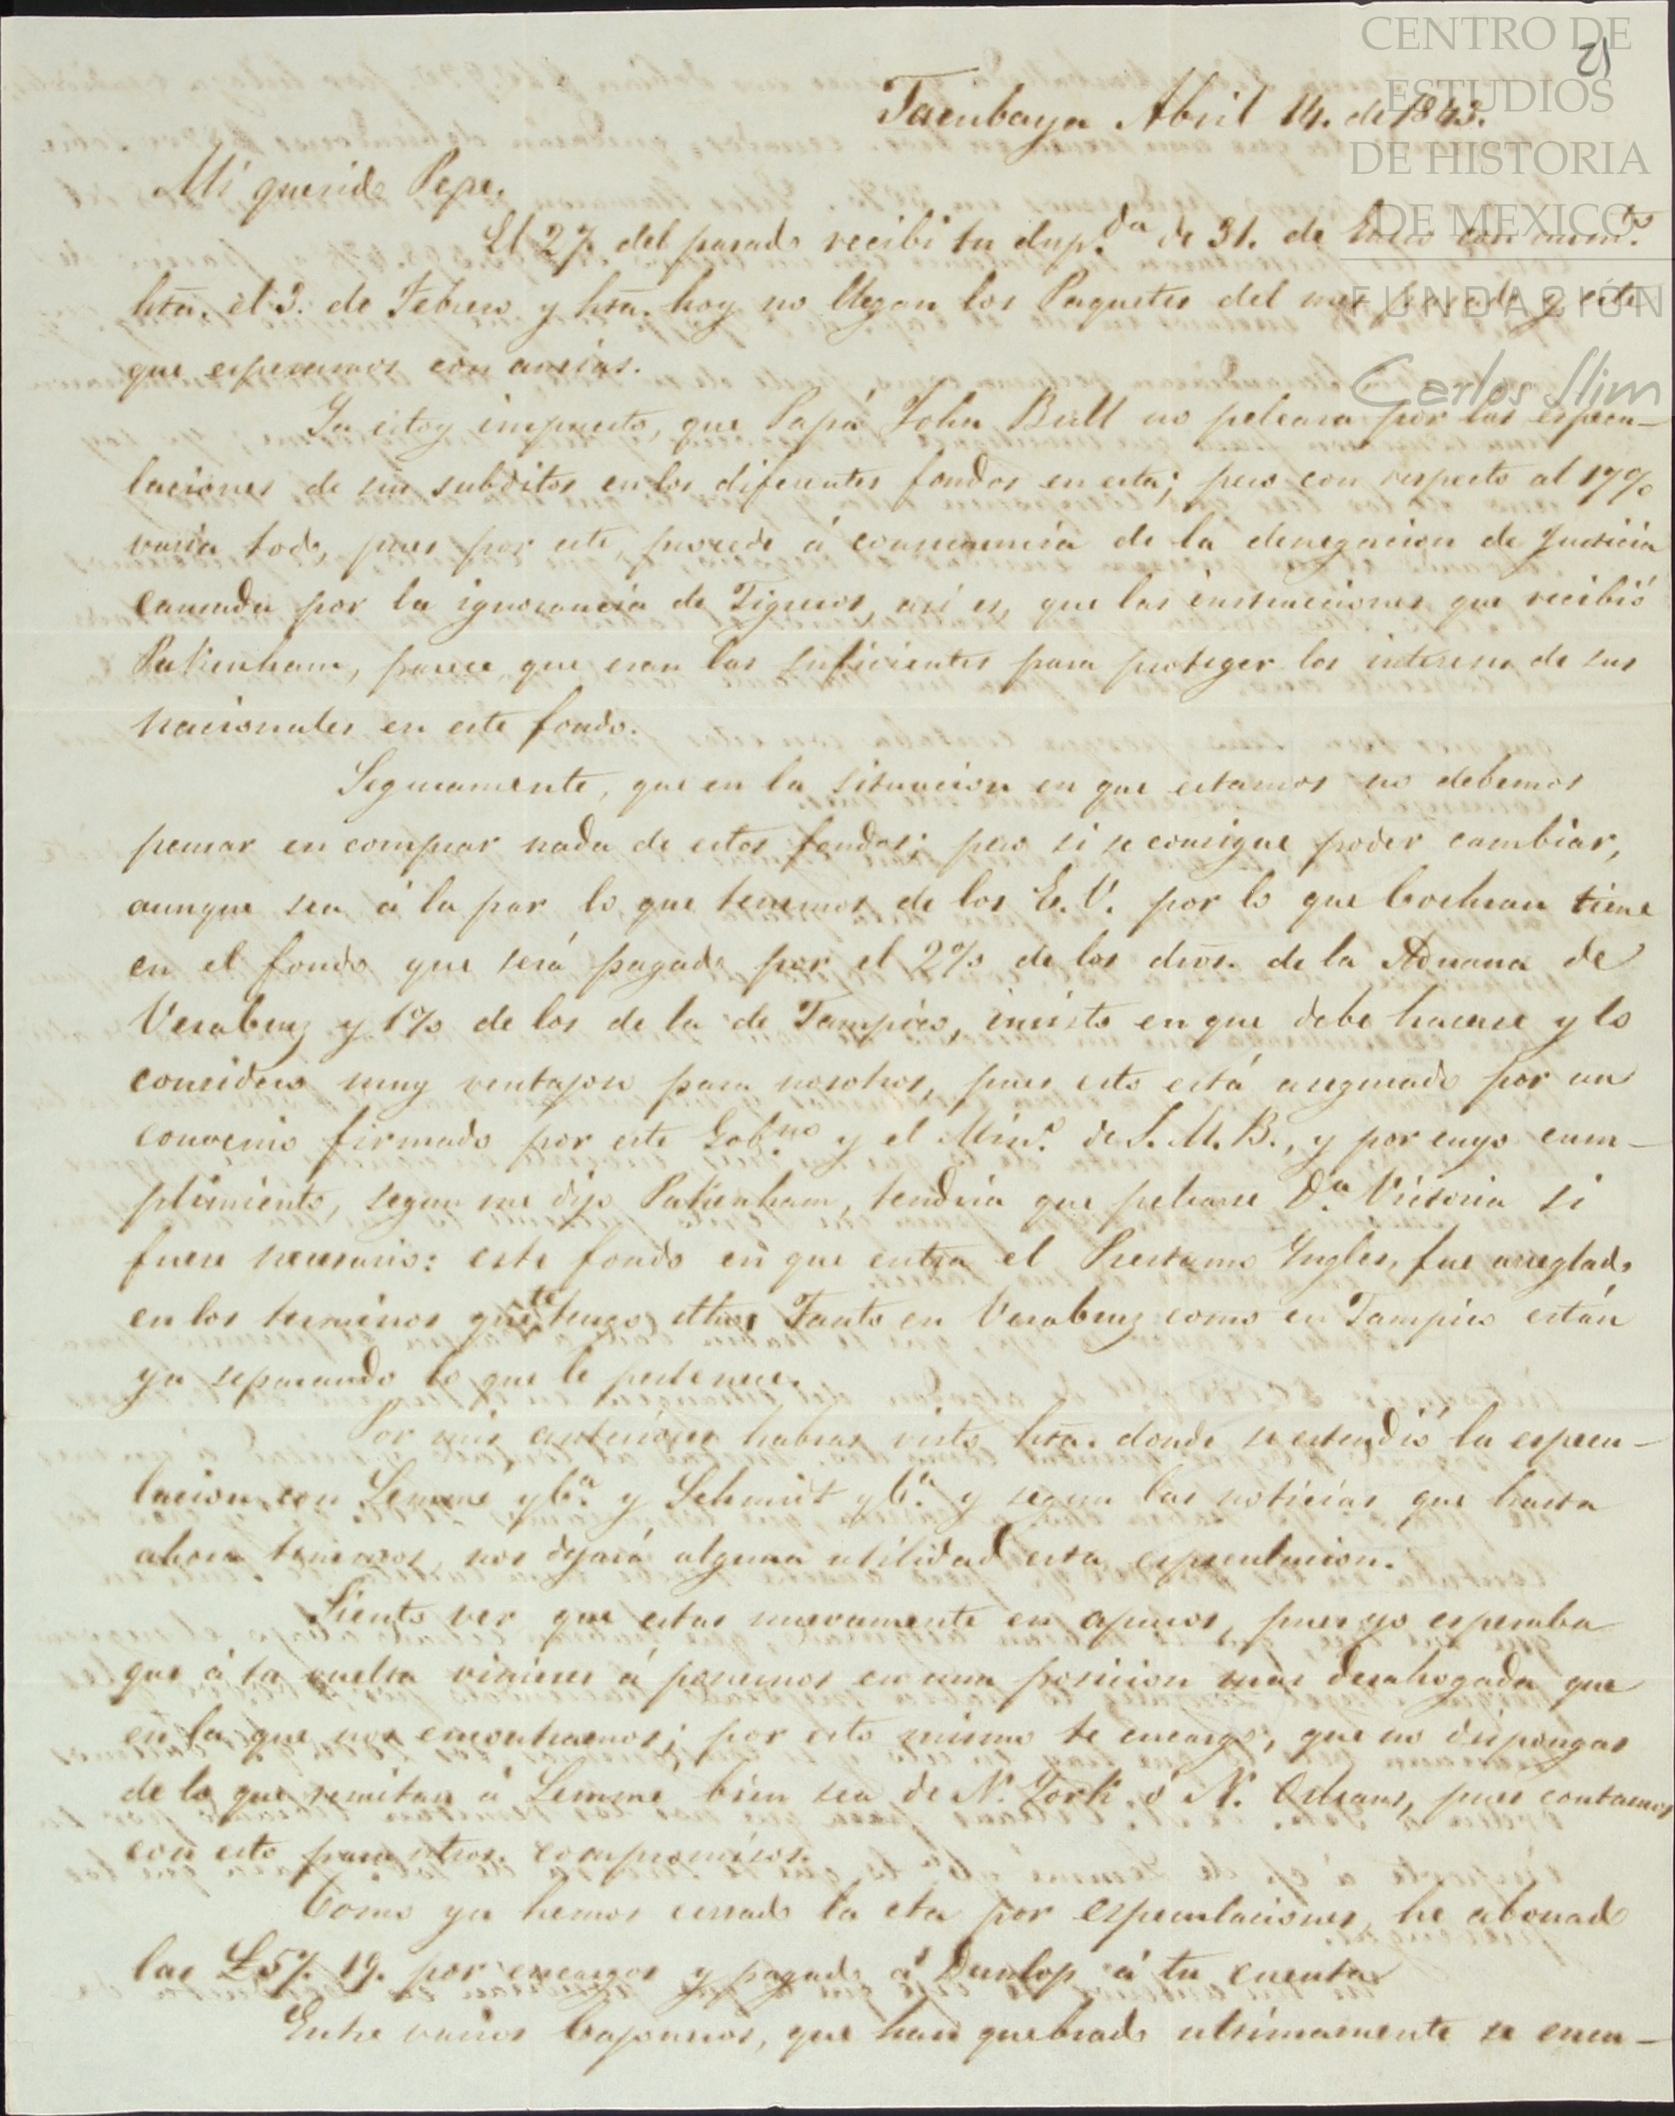 CENTRO DE
ESTUDIOS
DE HISTORIA
DE MEXICO
FUNDACIÓN
Carlos Slim
21
Tacubaya Abril 14. de 1843.
Mi querido Pepe.
El 27. del pasado recibi tu dup.da de 31. de Enero con aum.tos
hta. el 3. de Febrero y hta. hoy no llegan los Paquetes del mes pasado y este
que esperamos con ansias.
Ya estoy impuesto, que Papá John Bull no peleara por las especu-
laciones de sus subditos en los diferentes fondos en esta; pero con respecto al 17%
varia todo, pues por este, procede á consecuencia de la denegacion de Justicia
causada por la ignorancia de Tigueros, asi es, que las instrucciones que recibió
Pakenham, parece que eran las suficientes para proteger los intereses de sus
nacionales en este fondo.
Seguramente, que en la situacion en que estamos no debemos
pensar en comprar nada de estos fondos; pero si se consigue poder cambiar,
aunque sea á la par lo que tenemos de los E.V. por lo que Cochran tiene
en el fondo que será pagado por el 2% de los dros. de la Aduana de
VeraCruz y 1% de los de la de Tampico, insisto en que debe hacerse y lo
considero muy ventajoso para nosotros, pues esto está asegurado por un
convenio firmado por este Gob.no y el Min.o de S.M.B., y por cuyo cum-
plimiento, segun me dijo Pakenham, tendria que pelearse D.a Victoria si
fuere necesario: este fondo en que entra el Prestamo Yngles, fue arreglado
en los terminos que te tengo dho. Tanto en VeraCruz como en Tampico están
ya separando lo que le pertenece.
Por mis anteriores habras visto hta. donde se estendió la especu-
lacion con Lemmé y C.a y Schmidt y C.a y segun las noticias que hasta
ahora tenemos, nos dejará alguna utilidad esta especulacion.
Siento ver que estas nuevamente en apuros, pues yo esperaba
que á tu vuelta vinieses á ponernos en una posicion mas desahogada que
en la que nos encontramos; por esto mismo te encargo, que no dispongas
de lo que remitan á Lemmé bien sea de N. York ó N. Orleans, pues contamos
con esto para otros compromisos.
Como ya hemos cerrado la cta por especulaciones, he abonado
las £57. 19. por encargos y pagado á Dunlop á tu cuenta.
Entre varios Cajoneros, que han quebrado ultimamente se encu-